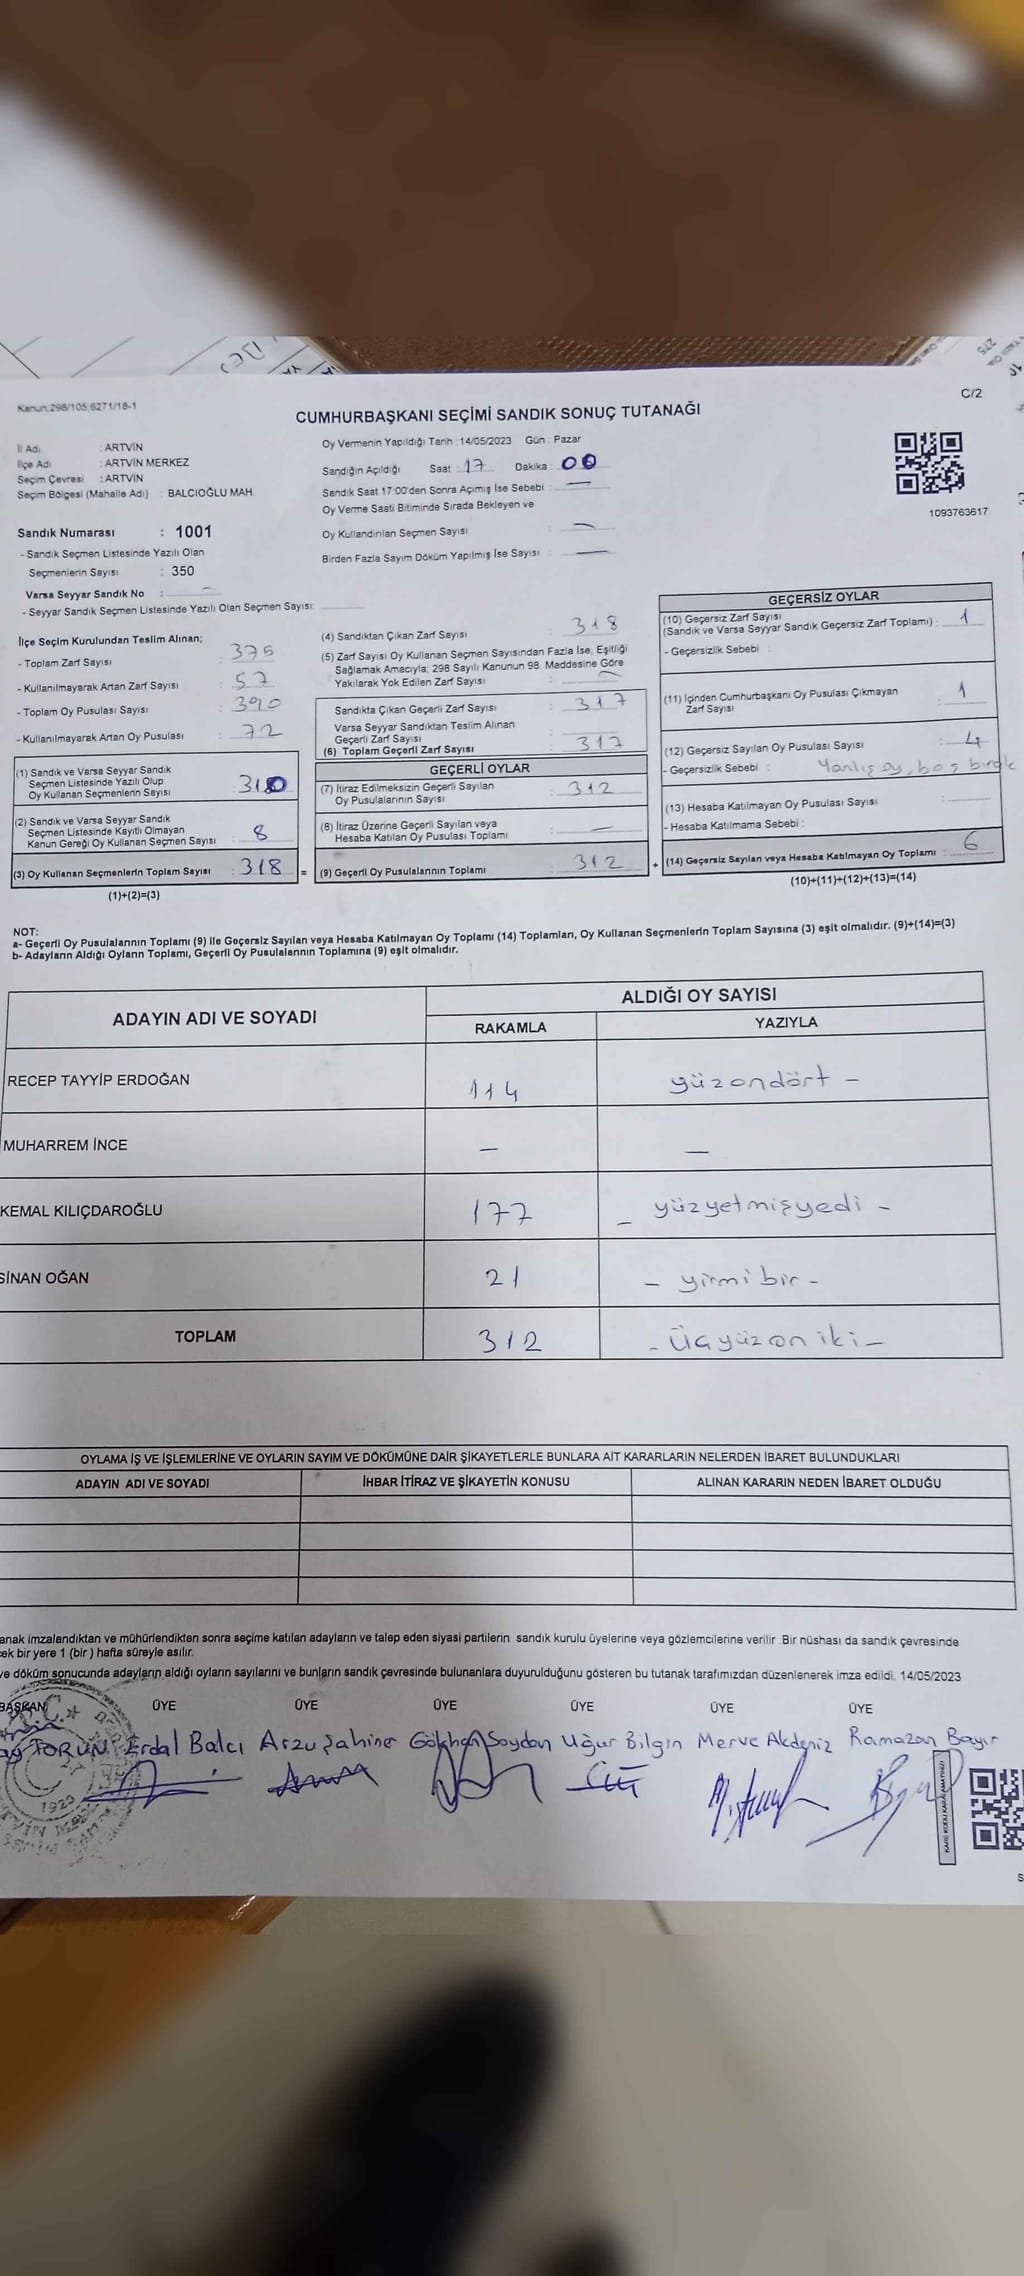 Kanun:298/105;6271/18-1
C/2
CUMHURBAŞKANI SEÇİMİ SANDIK SONUÇ TUTANAĞI
İl Adı : ARTVİN
İlçe Adı : ARTVİN MERKEZ
Seçim Çevresi : ARTVİN
Seçim Bölgesi (Mahalle Adı) : BALCIOĞLU MAH.
Sandık Numarası : 1001
- Sandık Seçmen Listesinde Yazılı Olan
Seçmenlerin Sayısı : 350
Varsa Seyyar Sandık No : —
- Seyyar Sandık Seçmen Listesinde Yazılı Olan Seçmen Sayısı:
Oy Vermenin Yapıldığı Tarih : 14/05/2023 Gün : Pazar
Sandığın Açıldığı Saat : 17 Dakika : 00
Sandık Saat 17:00'den Sonra Açımış İse Sebebi : —
Oy Verme Saati Bitiminde Sırada Bekleyen ve
Oy Kullandırılan Seçmen Sayısı : —
Birden Fazla Sayım Döküm Yapılmış İse Sayısı : —
1093763617
İlçe Seçim Kurulundan Teslim Alınan;
- Toplam Zarf Sayısı : 375
- Kullanılmayarak Artan Zarf Sayısı : 57
- Toplam Oy Pusulası Sayısı : 390
- Kullanılmayarak Artan Oy Pusulası : 72
(1) Sandık ve Varsa Seyyar Sandık
Seçmen Listesinde Yazılı Olup
Oy Kullanan Seçmenlerin Sayısı : 310
(2) Sandık ve Varsa Seyyar Sandık
Seçmen Listesinde Kayıtlı Olmayan
Kanun Gereği Oy Kullanan Seçmen Sayısı : 8
(3) Oy Kullanan Seçmenlerin Toplam Sayısı : 318
(1)+(2)=(3)
(4) Sandıktan Çıkan Zarf Sayısı : 318
(5) Zarf Sayısı Oy Kullanan Seçmen Sayısından Fazla İse, Eşitliği
Sağlamak Amacıyla; 298 Sayılı Kanunun 98. Maddesine Göre
Yakılarak Yok Edilen Zarf Sayısı : —
Sandıkta Çıkan Geçerli Zarf Sayısı : 317
Varsa Seyyar Sandıktan Teslim Alınan
Geçerli Zarf Sayısı :
(6) Toplam Geçerli Zarf Sayısı : 317
GEÇERLİ OYLAR
(7) İtiraz Edilmeksizin Geçerli Sayılan
Oy Pusulalarının Sayısı : 312
(8) İtiraz Üzerine Geçerli Sayılan veya
Hesaba Katılan Oy Pusulası Toplamı : —
= (9) Geçerli Oy Pusulalarının Toplamı : 312
GEÇERSİZ OYLAR
(10) Geçersiz Zarf Sayısı
(Sandık ve Varsa Seyyar Sandık Geçersiz Zarf Toplamı) : 1
- Geçersizlik Sebebi :
(11) İçinden Cumhurbaşkanı Oy Pusulası Çıkmayan
Zarf Sayısı : 1
(12) Geçersiz Sayılan Oy Pusulası Sayısı : 4
- Geçersizlik Sebebi : Yanlış oy, boş
(13) Hesaba Katılmayan Oy Pusulası Sayısı :
- Hesaba Katılmama Sebebi :
+ (14) Geçersiz Sayılan veya Hesaba Katılmayan Oy Toplamı : 6
(10)+(11)+(12)+(13)=(14)
NOT:
a- Geçerli Oy Pusulalarının Toplamı (9) ile Geçersiz Sayılan veya Hesaba Katılmayan Oy Toplamı (14) Toplamları, Oy Kullanan Seçmenlerin Toplam Sayısına (3) eşit olmalıdır. (9)+(14)=(3)
b- Adayların Aldığı Oyların Toplamı, Geçerli Oy Pusulalarının Toplamına (9) eşit olmalıdır.
ADAYIN ADI VE SOYADI ALDIĞI OY SAYISI
RAKAMLA YAZIYLA
RECEP TAYYİP ERDOĞAN 114 yüzondört -
MUHARREM İNCE — —
KEMAL KILIÇDAROĞLU 177 - yüzyetmişyedi -
SİNAN OĞAN 21 - yirmibir -
TOPLAM 312 - Üçyüzoniki -
OYLAMA İŞ VE İŞLEMLERİNE VE OYLARIN SAYIM VE DÖKÜMÜNE DAİR ŞİKAYETLERLE BUNLARA AİT KARARLARIN NELERDEN İBARET BULUNDUKLARI
ADAYIN ADI VE SOYADI İHBAR İTİRAZ VE ŞİKAYETİN KONUSU ALINAN KARARIN NEDEN İBARET OLDUĞU
anak imzalandıktan ve mühürlendikten sonra seçime katılan adayların ve talep eden siyasi partilerin sandık kurulu üyelerine veya gözlemcilerine verilir .Bir nüshası da sandık çevresinde
ek bir yere 1 (bir ) hafta süreyle asılır.
ve döküm sonucunda adayların aldığı oyların sayılarını ve bunların sandık çevresinde bulunanlara duyurulduğunu gösteren bu tutanak tarafımızdan düzenlenerek imza edildi. 14/05/2023
BAŞKAN ÜYE ÜYE ÜYE ÜYE ÜYE ÜYE
TORUN Erdal Balcı Arzu Şahiner Gökhan Saydan Uğur Bilgin Merve Akdeniz Ramazan Bayır
T.C.
1923
KARE KODU KARALAMAYINIZ